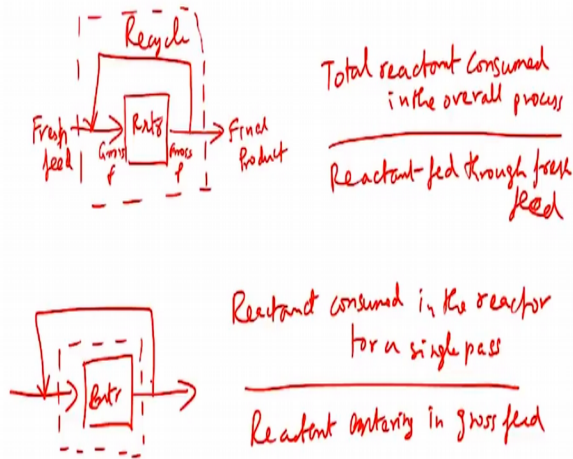 Recycle
Fresh
feed
Gross
f
Rxtr
Gross
p
Final
Product
Total reactant consumed
in the overall process
Reactant-fed through fresh
feed
Rxtr
Reactant consumed in the reactor
for a single pass
Reactant entering in gross feed